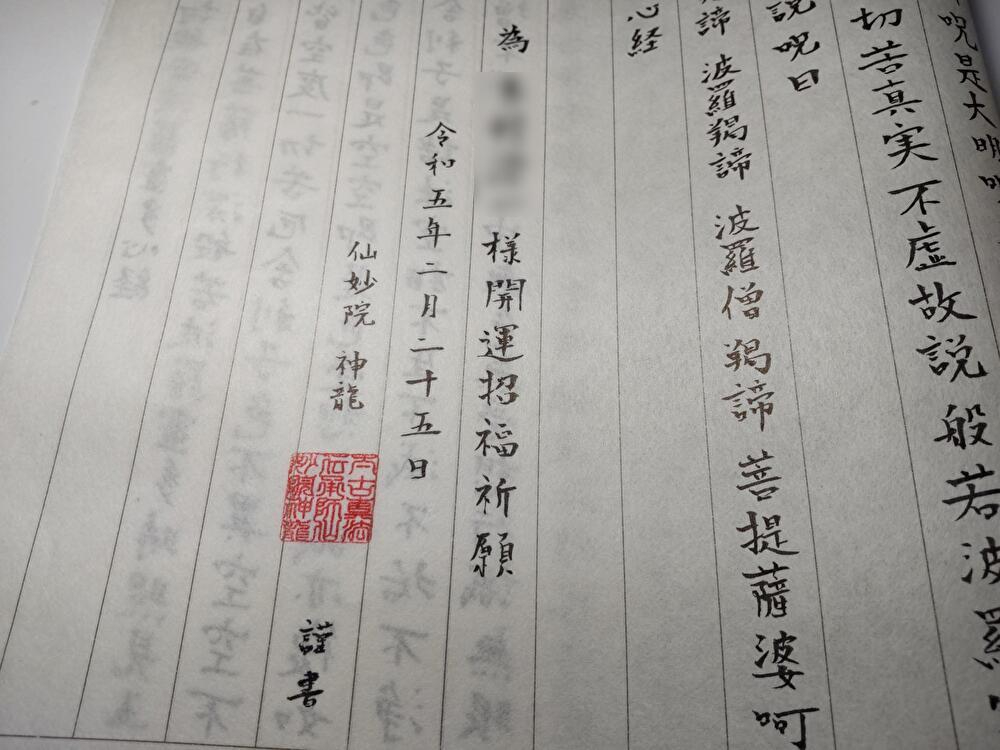 呪是大明呪
切苦真実不虚故説般若波羅
説呪曰
諦 波羅羯諦 波羅僧羯諦 菩提薩婆呵
心経
為
様開運招福祈願
令和五年二月二十五日
仙妙院 神龍
太古真法
伝承師仙
妙院神龍
謹書